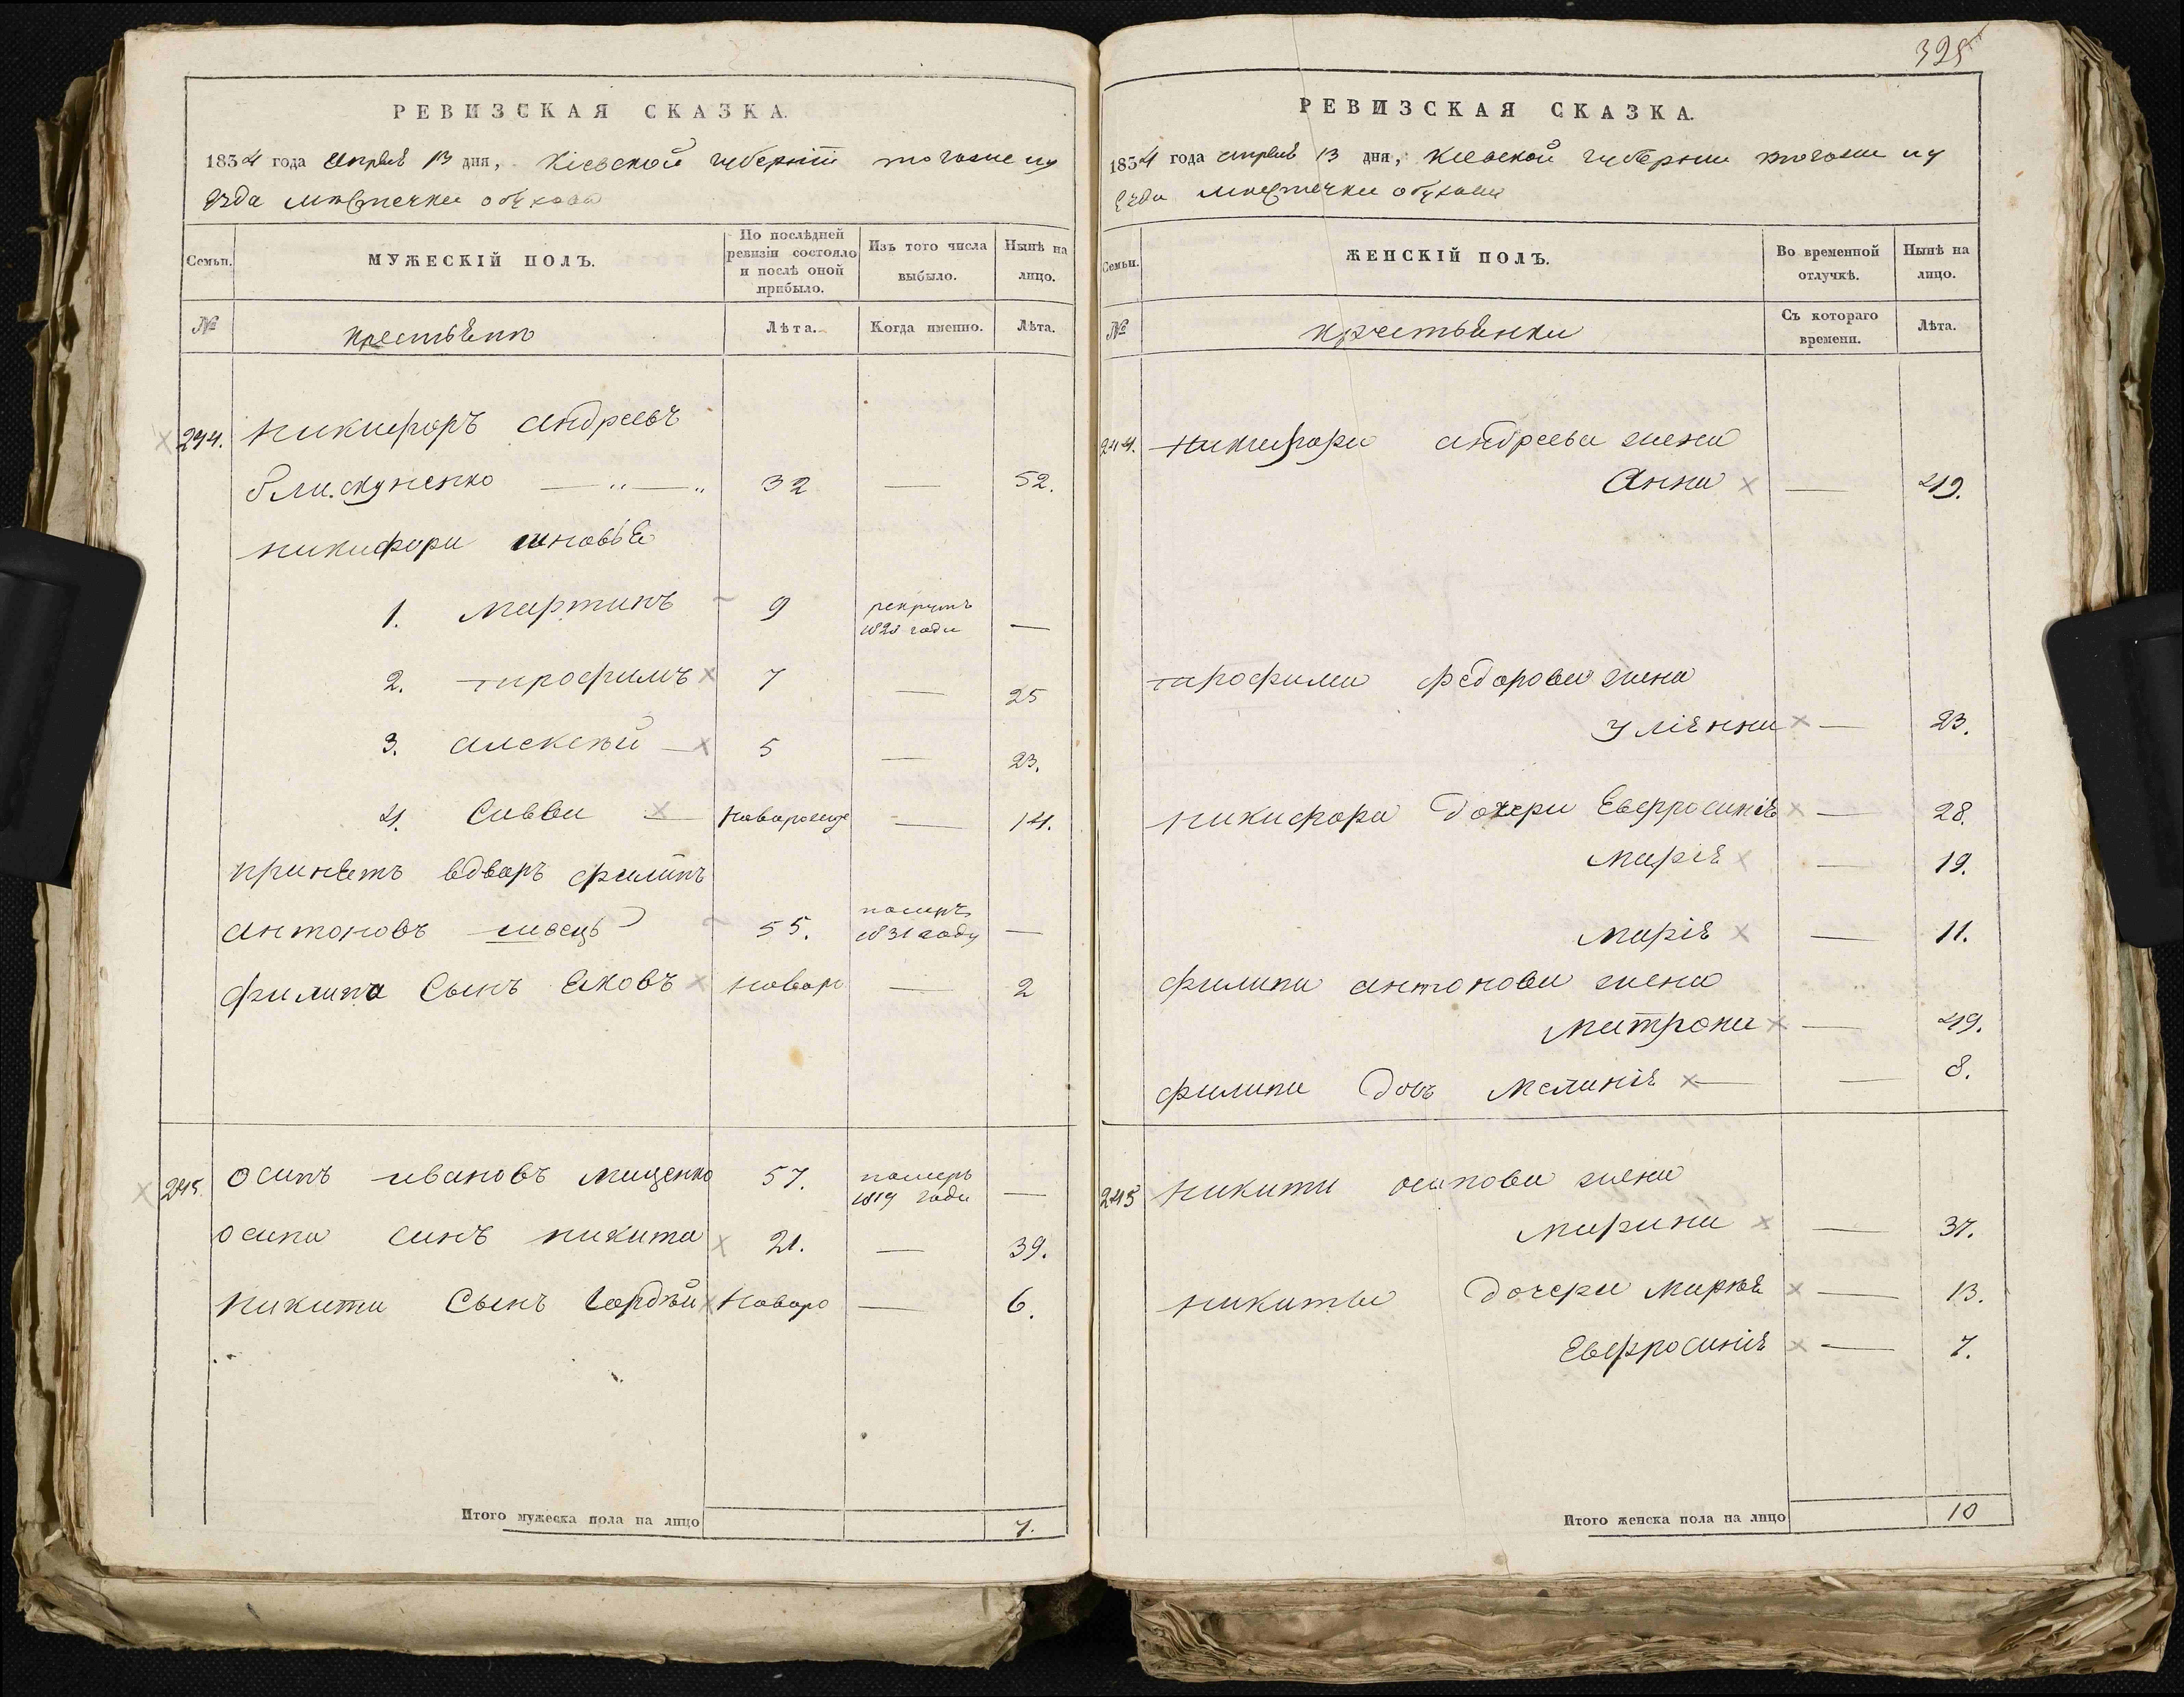 РЕВИЗСКАЯ СКАЗКА.
1834 года Апреля 13 дня, Кіевской губерніи тогоже уу
ѣзда мѣстечка обухова
Семьи.
МУЖЕСКІЙ ПОЛЪ.
По послѣдней ревизіи состояло и послѣ оной прибыло.
Изъ того числа выбыло.
Нынѣ на лицо.
№
крестьяне
Лѣта.
Когда именно.
Лѣта.
244. никифоръ андреевъ
32 — 52.
никифора
1. мартинъ 9 рекрутъ 1828 года —
2. трофимъ 7 — 25
3. алексѣй 5 — 23.
4. Савва новорож — 14.
принетъ вдворъ филипъ
антоновъ швецъ 55. померъ 1831 году —
филипа Сынъ Яковъ новоро — 2
245. осипъ ивановъ мищенко 57. померъ 1819 года —
осипа синъ никита 21. — 39.
никити Сынъ Гордѣй новоро — 6.
Итого мужеска пола на лицо 7.
325
РЕВИЗСКАЯ СКАЗКА.
1834 года апреля 13 дня, Кіевской губернии тогоже уу
ѣзда мѣстечка обухова
Семьи.
ЖЕНСКІЙ ПОЛЪ.
Во временной отлучкѣ.
Нынѣ на лицо.
№
крестьянки
Съ котораго времени.
Лѣта.
244. никифора андреева жена
Анна — 49.
трофима федорова жена
Улієнна — 23.
никифора дочери Евфросинія — 28.
Марія — 19.
Марія — 11.
филипа антонова жена
Матрона — 49.
филипа дочь Меланія — 8.
245 никити осипова жена
Марина — 37.
никиты дочери Марія — 13.
Евфросинія — 7.
Итого женска пола на лицо 10